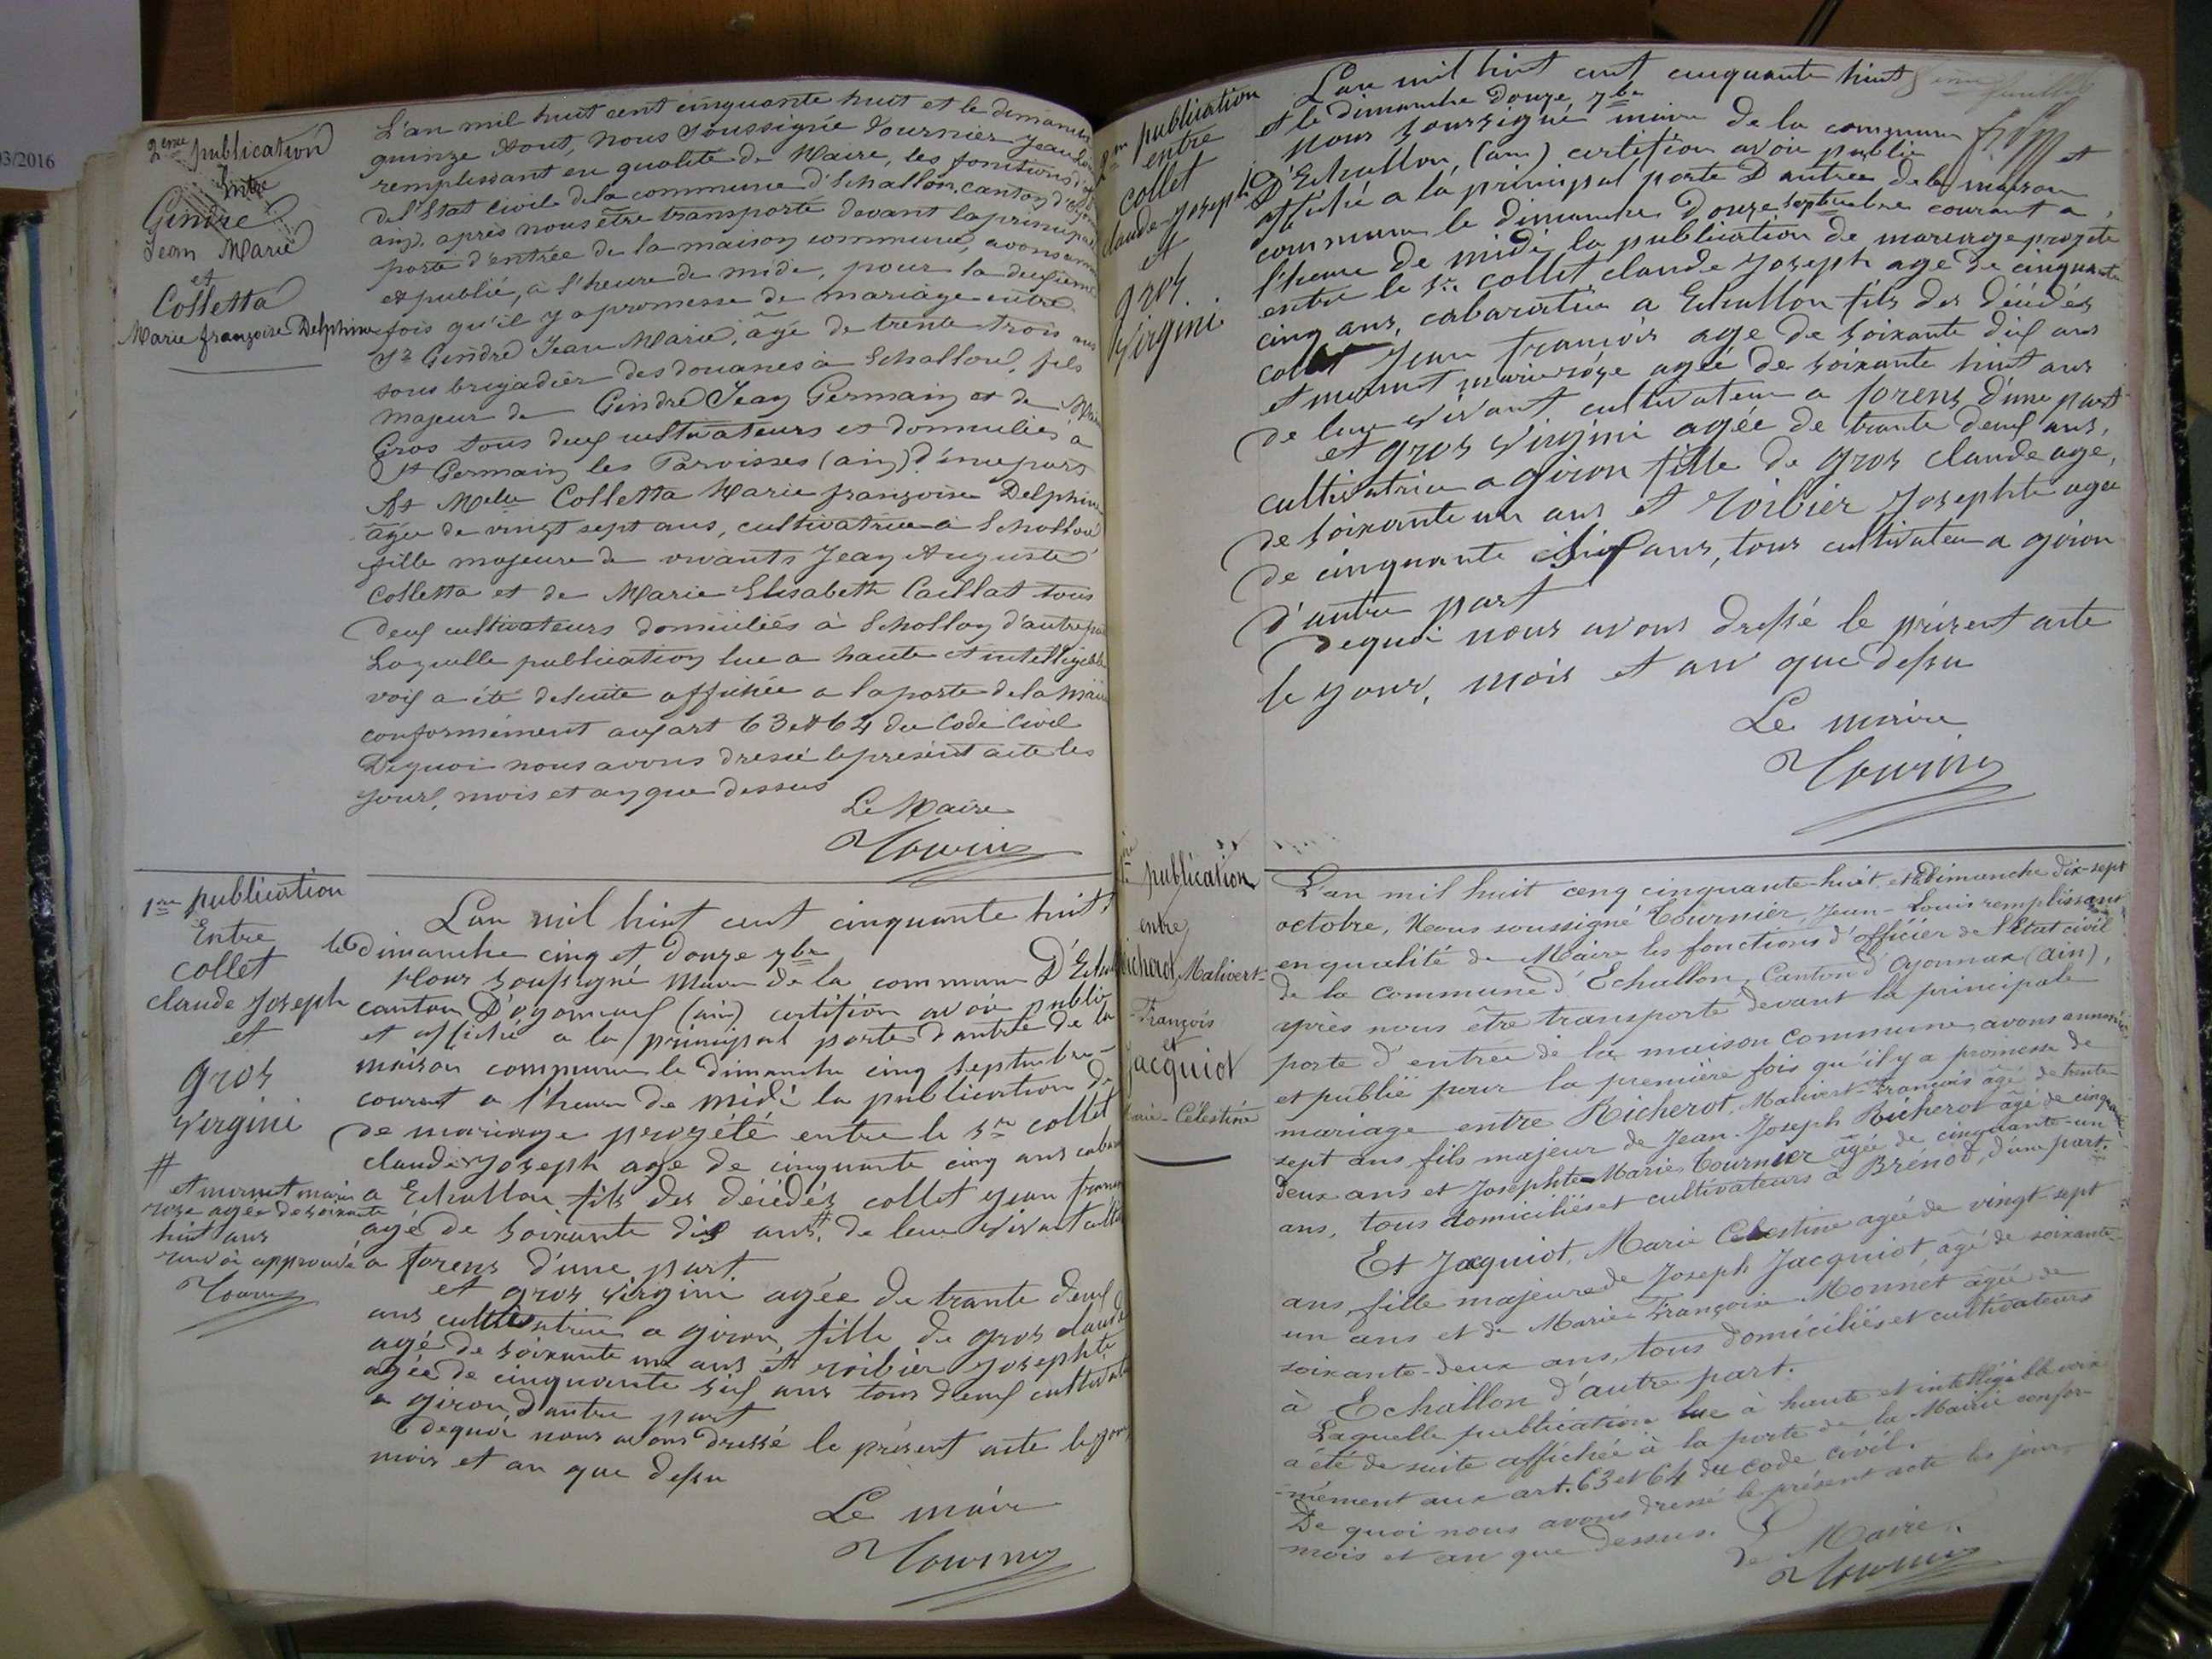 03/2016
2eme publication
Entre
Gindre
Jean Marie
et
Colletta
Marie françoise Delphine
L'an mil huit cent cinquante huit et le dimanche
quinze Aout, nous soussignée Tournier Jean Louis
remplissant en qualité de Maire, les fonctions
de l'Etat Civile de la commune d'Echallon, canton d'
ain, après nous être transporté devant la principale
porte d'entrée de la maison commune, avons
et publié, à l'heure de midi, pour la deuxième
fois qu'il y a promesse de mariage entre
Sr Gindre Jean Marie, âgé de trente trois ans
sous brigadier des douanes à Echallon, fils
majeur de Gindre Jean Germain et de Marie
Gros tous deux cultivateurs et domiciliés à
St Germain les Paroisses (ain) d'une part
Et Melle Colletta Marie françoise Delphine
âgée de vingt sept ans, cultivatrice à Echallon
fille majeure de vivants Jean Auguste
Colletta et de Marie Elisabeth Caillat tous
deux cultivateurs domiciliés à Echallon d'autre part
Laquelle publication lue a haute et intelligible
voix a été desuite affichée a la porte de la Mairie
conformément aux art 63 et 64 du Code Civil
Dequoi nous avons dressé le présent acte les
jour, mois et an que dessus
Le Maire
Tournier
1re publication
Entre
collet
claude Joseph
et
gros
virgini
#
et mermet marie
roze agée de soixante
huit ans
renvoi approuvé
Tournier
L'an mil huit cent cinquante huit
le dimanche cinq et douze 7bre
Nous soussigné Maire de la commune D'Echallon
canton D'oyonnax (ain) certifion avoir publié
et affiché a la principal porte d'antrée de la
maison commune le dimanche cinq septembre
courent a l'heure de midi la publication de
de mariage progété entre le sr collet
claude Joseph age de cinquante cinq ans
a Echallon fils des décédés collet jean francois
agé de soixante dix ans # de leur vivant
a forens d'une part
et gros virgini agée de trante deux
ans cultivatrice a giron, fille de gros claude
agé de soixante un ans et roibier josephte
agée de cinquante six ans tous deux cultivateur
a giron, d'autre part
dequoi nous avons dressé le présent acte le jour,
mois et an que dessu
Le maire
Tournier
2me publication
entre
collet
claude Joseph
et
gros
virgini
L'an mil huit cent cinquante huit
et le dimanche douze 7bre
nous soussigné maire de la commune
D'Echallon, (ain) certifion avoir publié et
affiché a la principal porte D'antrée de la maison
commune le dimanche douze septembre courant a
l'heure de midi la publication de mariage progété
entre le sr collet claude Joseph age de cinquante
cinq ans, cabaretier a Echallon fils des décédés
collet jean francois age de soixante dix ans
et mermet marie roze agée de soixante huit ans
de leur vivant cultivateur a forens d'une part
et gros virgini agée de trante deux ans,
cultivatrice a giron fille de gros claude age,
de soixante un ans et roibier Josephte agée
de cinquante six ans, tous cultivateur a giron
d'autre part
dequoi nous avons dressé le présent acte
le jour, mois et an que dessu
Le maire
Tournier
1ère publication
entre
Richerot, Malivert-
-François
et
Jacquiot
Marie-Célestine
L'an mil huit cenq cinquante-huit et le dimanche dix-sept
octobre, Nous soussigné Tournier, Jean-Louis remplissant
en qualité de Maire les fonctions d'officier de l'Etat civil
de la Commune d'Echallon, Canton d'Oyonnax (Ain),
après nous être transporté devant la principale
porte d'entrée de la maison Commune, avons annoncé
et publié pour la première fois qu'il y a promesse de
mariage entre Richerot, Malivert-François âgé de trente
sept ans fils majeur de Jean-Joseph Richerot âgé de cinquante-
deux ans et Josephte-Marie Tournier âgée de cinquante-un
ans, tous domiciliés et cultivateurs à Brénod, d'une part.
Et Jacquiot, Marie Célestine agée de vingt-sept
ans, fille majeure de Joseph Jacquiot, âgé de soixante-
un ans et de Marie Françoise Monnet âgée de
soixante-deux ans, tous domiciliés et cultivateurs
à Echallon d'autre part.
Laquelle publication lue à haute et intelligible voix
a été de suite affichée à la porte de la Mairie confor-
-mément aux art. 63 et 64 du code civil.
De quoi nous avons dressé le présent acte les jour,
mois et an que dessus.
Le Maire,
Tournier